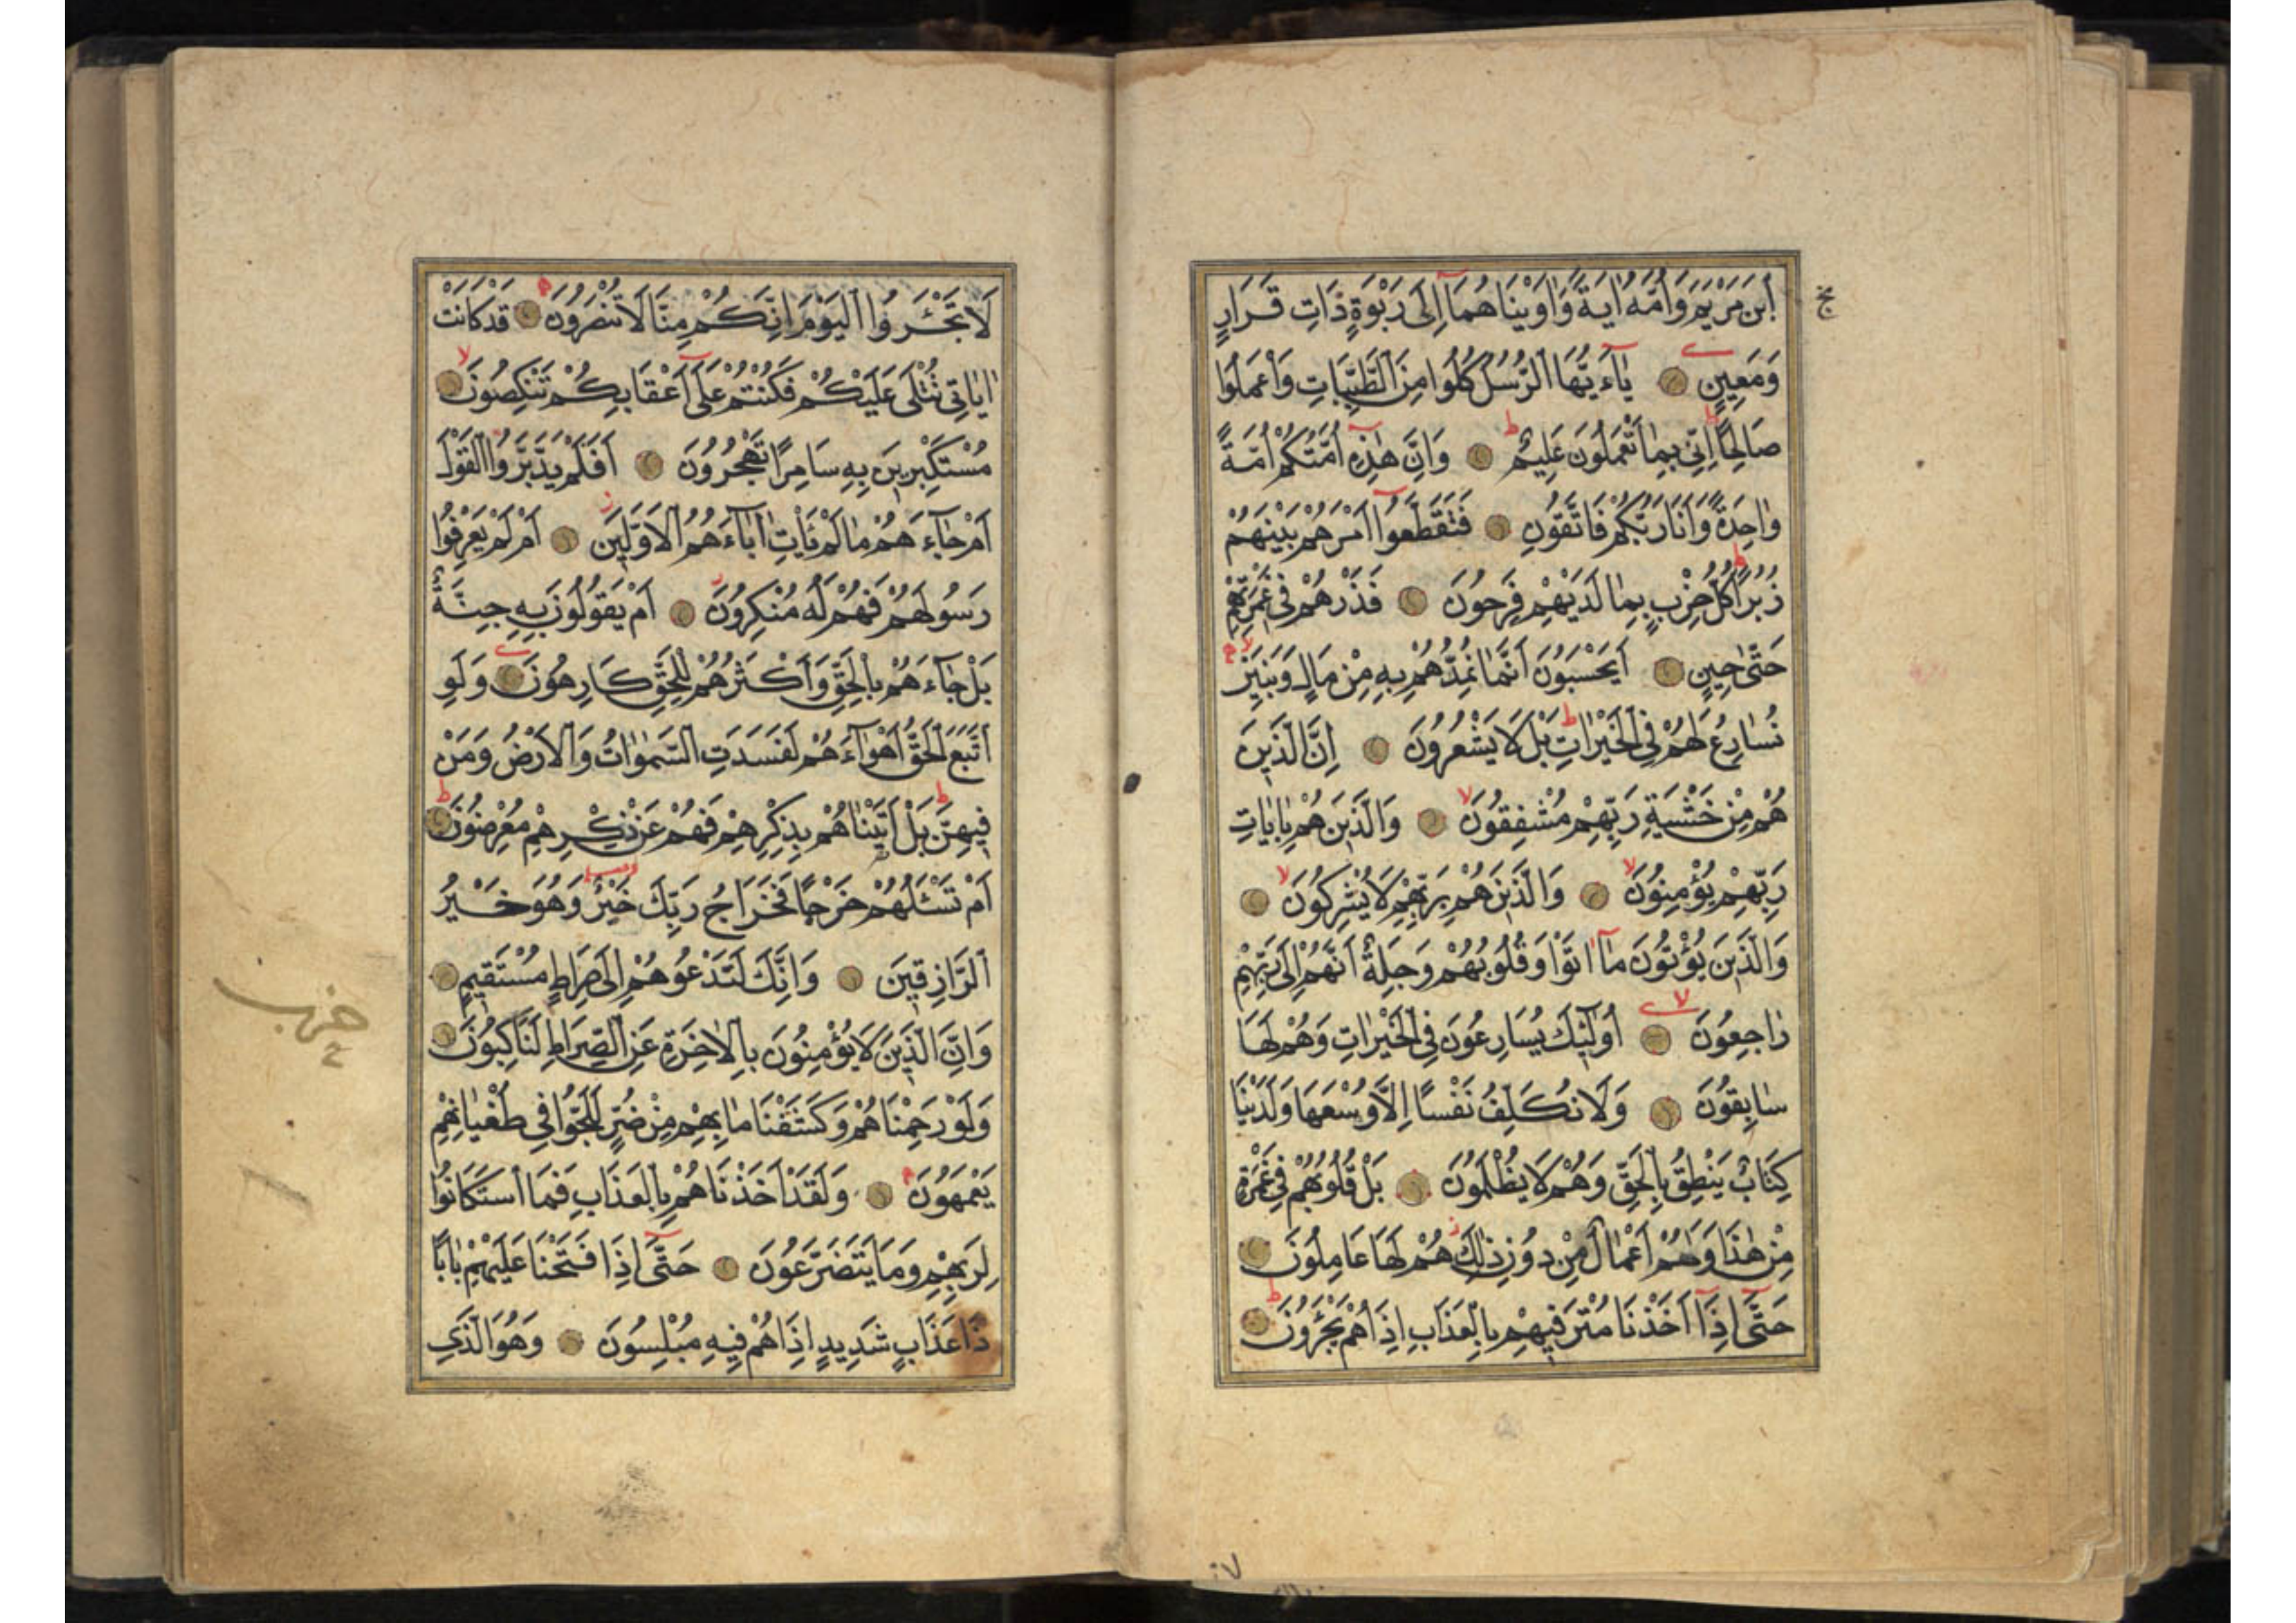 ٱبْنَ مَرْيَمَ وَاُمَّهُ اٰيَةً وَاٰوَيْنَاهُمَٓا اِلٰى رَبْوَةٍ ذَاتِ قَرَارٍ
وَمَعِينٍ يَٓا ءَيُّهَا ٱلرُّسُلُ كُلُوا مِنَ ٱلطَّيِّبَاتِ وَٱعْمَلُوا
صَالِحًا اِنّ۪ي بِمَا تَعْمَلُونَ عَلِيمٌ وَاِنَّ هٰذِه۪ٓ اُمَّتُكُمْ اُمَّةً
وَاحِدَةً وَاَنَا رَبُّكُمْ فَاتَّقُونِ فَتَقَطَّعُٓوا اَمْرَهُمْ بَيْنَهُمْ
زُبُرًا كُلُّ حِزْبٍ بِمَا لَدَيْهِمْ فَرِحُونَ فَذَرْهُمْ ف۪ي غَمْرَتِهِمْ
حَتّٰى ح۪ينٍ اَيَحْسَبُونَ اَنَّمَا نُمِدُّهُمْ بِه۪ مِنْ مَالٍ وَبَن۪ينَ
نُسَارِعُ لَهُمْ فِي ٱلْخَيْرَاتِ بَلْ لَا يَشْعُرُونَ اِنَّ ٱلَّذ۪ينَ
هُمْ مِنْ خَشْيَةِ رَبِّهِمْ مُشْفِقُونَ وَٱلَّذ۪ينَ هُمْ بِاٰيَاتِ
رَبِّهِمْ يُؤْمِنُونَ وَٱلَّذ۪ينَ هُمْ بِرَبِّهِمْ لَا يُشْرِكُونَ
وَٱلَّذ۪ينَ يُؤْتُونَ مَٓا اٰتَوْا وَقُلُوبُهُمْ وَجِلَةٌ اَنَّهُمْ اِلٰى رَبِّهِمْ
رَاجِعُونَ اُو۬لٰٓئِكَ يُسَارِعُونَ فِي ٱلْخَيْرَاتِ وَهُمْ لَهَا
سَابِقُونَ وَلَا نُكَلِّفُ نَفْسًا اِلَّا وُسْعَهَا وَلَدَيْنَا
كِتَابٌ يَنْطِقُ بِٱلْحَقِّ وَهُمْ لَا يُظْلَمُونَ بَلْ قُلُوبُهُمْ ف۪ي غَمْرَةٍ
مِنْ هٰذَا وَلَهُمْ اَعْمَالٌ مِنْ دُونِ ذٰلِكَ هُمْ لَهَا عَامِلُونَ
حَتّٰٓى اِذَٓا اَخَذْنَا مُتْرَف۪يهِمْ بِٱلْعَذَابِ اِذَا هُمْ يَجْـَٔرُونَ
لَا تَجْـَٔرُوا ٱلْيَوْمَ اِنَّكُمْ مِنَّا لَا تُنْصَرُونَ قَدْ كَانَتْ
اٰيَات۪ي تُتْلٰى عَلَيْكُمْ فَكُنْتُمْ عَلٰٓى اَعْقَابِكُمْ تَنْكِصُونَ
مُسْتَكْبِر۪ينَ بِه۪ سَامِرًا تَهْجُرُونَ اَفَلَمْ يَدَّبَّرُوا ٱلْقَوْلَ
اَمْ جَٓاءَهُمْ مَا لَمْ يَأْتِ اٰبَٓاءَهُمُ ٱلْاَوَّل۪ينَ اَمْ لَمْ يَعْرِفُوا
رَسُولَهُمْ فَهُمْ لَهُ مُنْكِرُونَ اَمْ يَقُولُونَ بِه۪ جِنَّةٌ
بَلْ جَٓاءَهُمْ بِٱلْحَقِّ وَاَكْثَرُهُمْ لِلْحَقِّ كَارِهُونَ وَلَوِ
ٱتَّبَعَ ٱلْحَقُّ اَهْوَٓاءَهُمْ لَفَسَدَتِ ٱلسَّمٰوَاتُ وَٱلْاَرْضُ وَمَنْ
ف۪يهِنَّ بَلْ اَتَيْنَاهُمْ بِذِكْرِهِمْ فَهُمْ عَنْ ذِكْرِهِمْ مُعْرِضُونَ
اَمْ تَسْـَٔلُهُمْ خَرْجًا فَخَرَاجُ رَبِّكَ خَيْرٌ وَهُوَ خَيْرُ
ٱلرَّازِق۪ينَ وَاِنَّكَ لَتَدْعُوهُمْ اِلٰى صِرَاطٍ مُسْتَق۪يمٍ
وَاِنَّ ٱلَّذ۪ينَ لَا يُؤْمِنُونَ بِٱلْاٰخِرَةِ عَنِ ٱلصِّرَاطِ لَنَاكِبُونَ
وَلَوْ رَحِمْنَاهُمْ وَكَشَفْنَا مَا بِهِمْ مِنْ ضُرٍّ لَلَجُّوا ف۪ي طُغْيَانِهِمْ
يَعْمَهُونَ وَلَقَدْ اَخَذْنَاهُمْ بِٱلْعَذَابِ فَمَا ٱسْتَكَانُوا
لِرَبِّهِمْ وَمَا يَتَضَرَّعُونَ حَتّٰٓى اِذَا فَتَحْنَا عَلَيْهِمْ بَابًا
ذَا عَذَابٍ شَد۪يدٍ اِذَا هُمْ ف۪يهِ مُبْلِسُونَ وَهُوَ ٱلَّذ۪ي
حزب